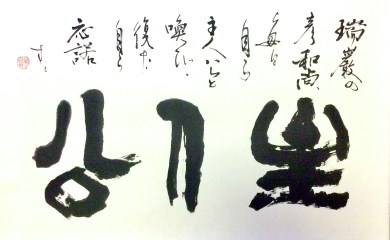 瑞巌の
彦和尚
毎日
自ら
主人公と
喚び、
復た
自ら
応諾
す
主人公